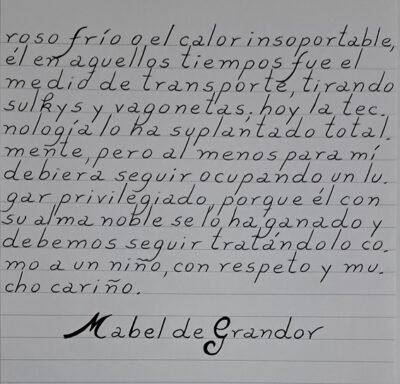 roso frío o el calor insoportable,
él en aquellos tiempos fue el
medio de transporte, tirando
sulkys y vagonetas, hoy la tec.
nología lo ha suplantado total.
mente, pero al menos para mí
debiera seguir ocupando un lu.
gar privilegiado, porque él con
su alma noble se lo ha ganado y
debemos seguir tratándolo co.
mo a un niño, con respeto y mu.
cho cariño.
Mabel de Grandor